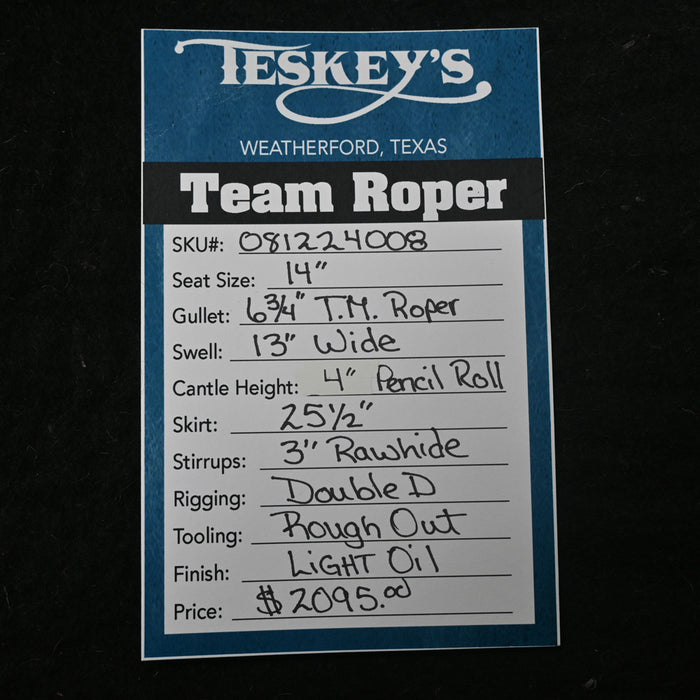 TESKEY'S
WEATHERFORD, TEXAS
Team Roper
SKU#: 081224008
Seat Size: 14"
Gullet: 6¾" T.M. Roper
Swell: 13" Wide
Cantle Height: 4" Pencil Roll
Skirt: 25½"
Stirrups: 3" Rawhide
Rigging: Double D
Tooling: Rough Out
Finish: LIGHT Oil
Price: $2095.00